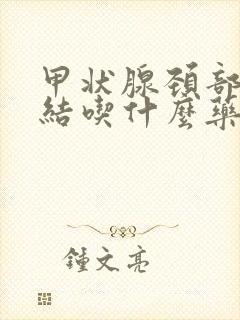 甲状腺颈部
結喫什麼藥
鍾文亮